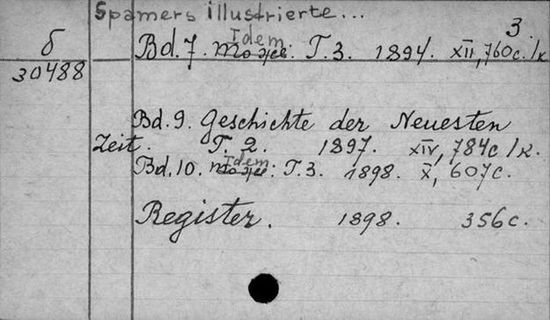 Spamers illustrierte...
3.
б
30488
Bd. 7. Idem То же: T. 3. 1894. XII, 760 с. /к
Bd. 9. Geschichte der Neuesten
Zeit. T. 2. 1897. XIV, 784 с /к.
Bd. 10. Idem То же: T. 3. 1898. X, 607 с.
Register. 1898. 356 с.